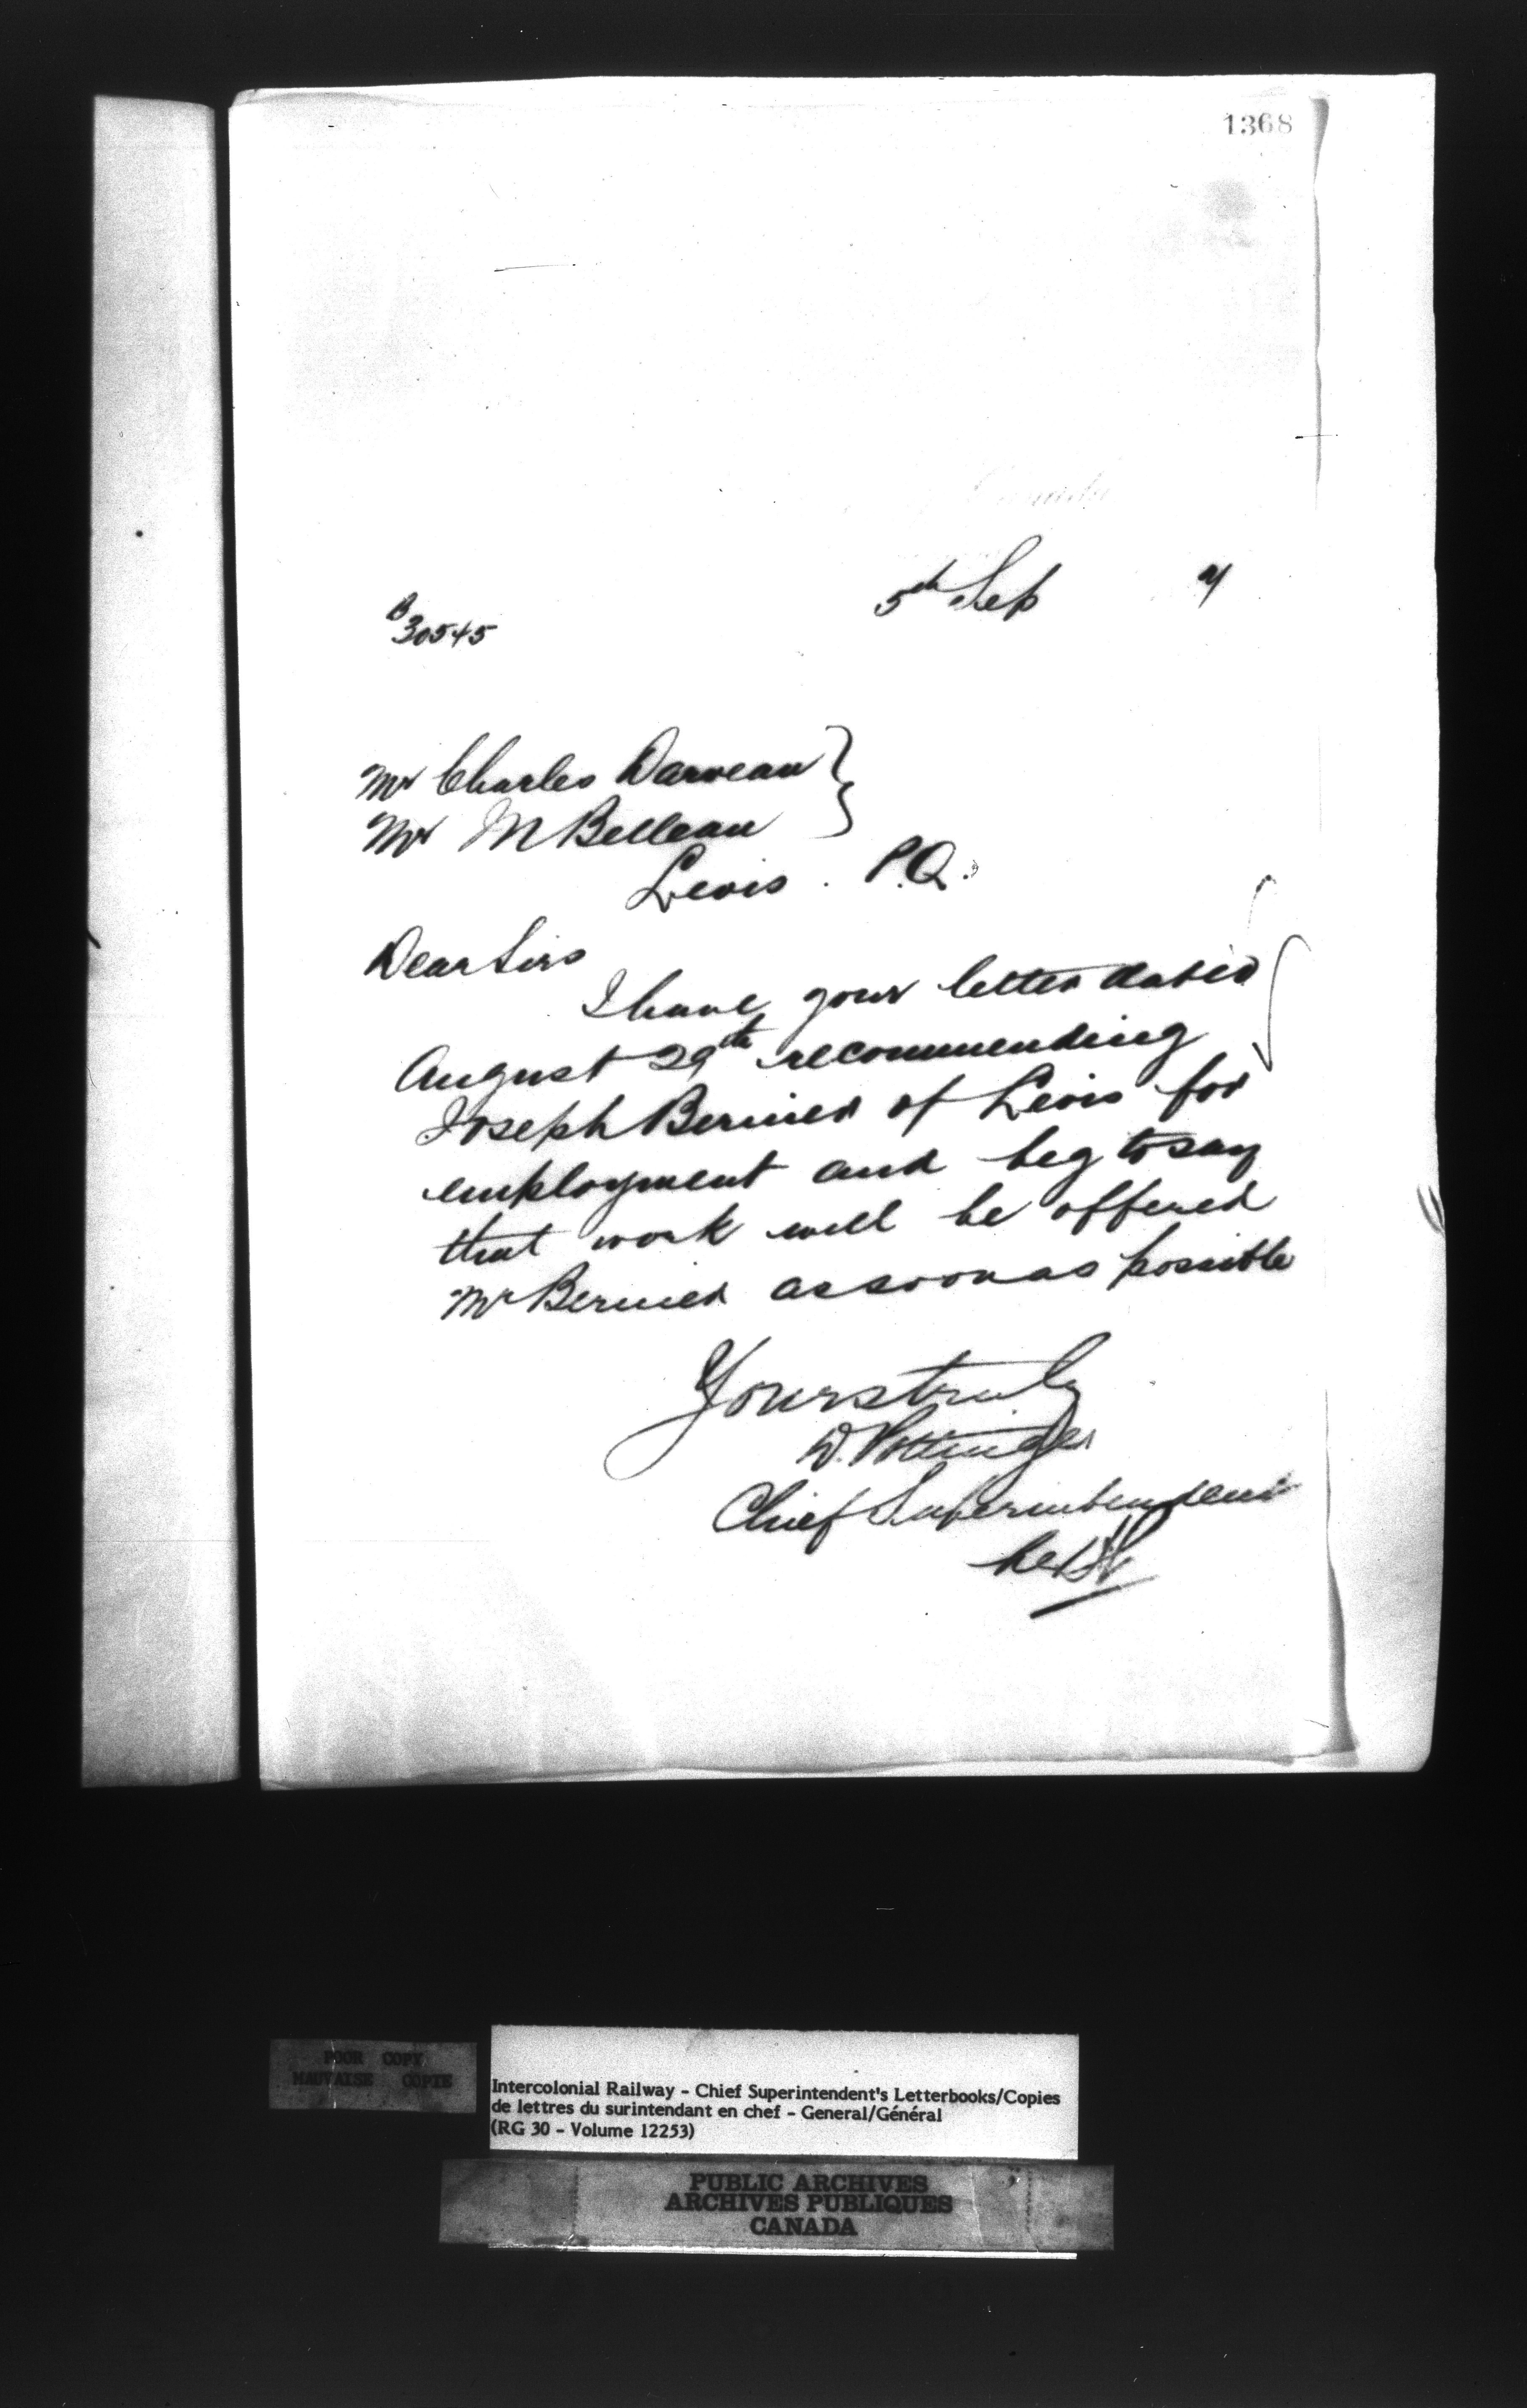 1368
5th Sep
B
30545
Mr Charles Darveau
Mr M Belleau
Levis. P.Q.
Dear Sirs
I have your letter dated
August 29th recommending
Joseph Bernier of Levis for
employment and beg to say
that work will be offered
Mr Bernier as soon as possible
Yours truly
D. Pottinger
Chief Superintendent
POOR COPY
MAUVAISE COPIE
Intercolonial Railway - Chief Superintendent's Letterbooks/Copies
de lettres du surintendant en chef - General/Général
(RG 30 - Volume 12253)
PUBLIC ARCHIVES
ARCHIVES PUBLIQUES
CANADA